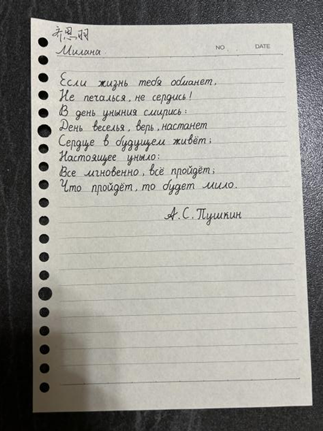 齐思羽
Милана
NO
DATE
Если жизнь тебя обманет,
Не печалься, не сердись!
В день уныния смирись:
День веселья, верь, настанет
Сердце в будущем живёт;
Настоящее уныло:
Все мгновенно, всё пройдёт;
Что пройдёт, то будет мило.
А.С.Пушкин